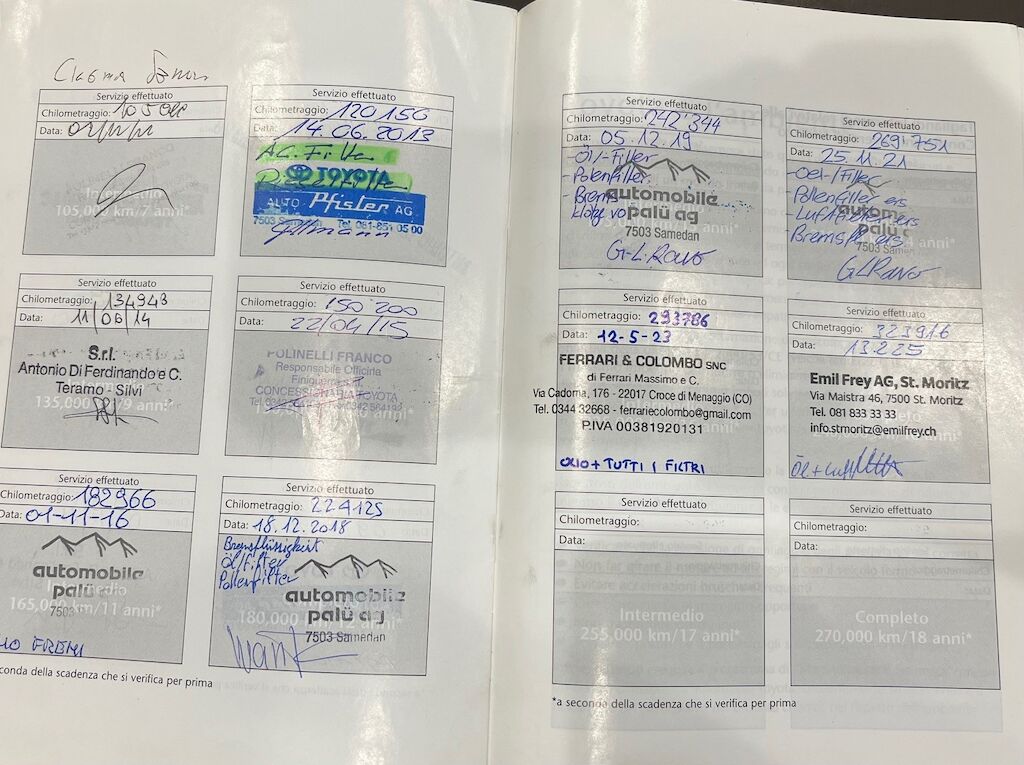 Servizio effettuato
Chilometraggio:
Data:
Intermedio
105,000 km/7 anni*
Servizio effettuato
Chilometraggio: 120 150
Data: 14.06.2013
TOYOTA
AUTO Pfister AG
7503 Samedan Tel. 081-851 05 00
Servizio effettuato
Chilometraggio: 134943
Data: 11/06/14
S.r.l.
Antonio Di Ferdinando e C.
Teramo - Silvi
135,000 km/9 anni*
Servizio effettuato
Chilometraggio: 150 200
Data: 22/04/15
POLINELLI FRANCO
Responsabile Officina
CONCESSIONARIA TOYOTA
Servizio effettuato
Chilometraggio: 182966
Data: 01-11-16
automobile
palü
7503
Intermedio
165,000 km/11 anni*
FRENI
Servizio effettuato
Chilometraggio: 224125
Data: 18.12.2018
Bremsflüssigkeit
Öl/Filter
Pollenfilter
automobile
palü ag
7503 Samedan
180,000 km/12 anni*
conda della scadenza che si verifica per prima
Servizio effettuato
Chilometraggio: 242'344
Data: 05.12.19
-Öl-Filter
-Polenfilter
-Brems
klötz vo
automobile
palü ag
7503 Samedan
G-L.Ravo
Servizio effettuato
Chilometraggio: 269'751
Data: 25.11.21
-Oel-/Filter
-Pollenfilter ers
-Luftfilter ers
-Bremsfl. ers
GLRavo
Servizio effettuato
Chilometraggio: 293786
Data: 12-5-23
FERRARI & COLOMBO SNC
di Ferrari Massimo e C.
Via Cadorna, 176 - 22017 Croce di Menaggio (CO)
Tel. 0344 32668 - ferrariecolombo@gmail.com
P.IVA 00381920131
OLIO + TUTTI I FILTRI
Servizio effettuato
Chilometraggio: 323916
Data: 13.2.25
Emil Frey AG, St. Moritz
Via Maistra 46, 7500 St. Moritz
Tel. 081 833 33 33
info.stmoritz@emilfrey.ch
Servizio effettuato
Chilometraggio:
Data:
Intermedio
255,000 km/17 anni*
Servizio effettuato
Chilometraggio:
Data:
Completo
270,000 km/18 anni*
*a seconda della scadenza che si verifica per prima